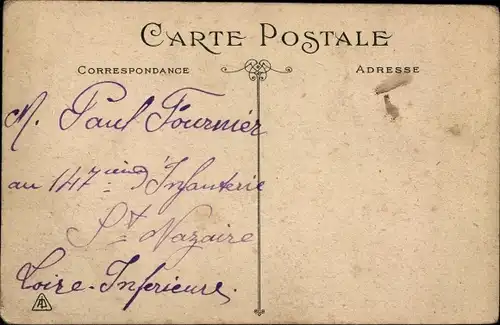 CARTE POSTALE
CORRESPONDANCE
ADRESSE
M. Paul Fournier
au 147 ème d'Infanterie
St Nazaire
Loire-Inférieure.